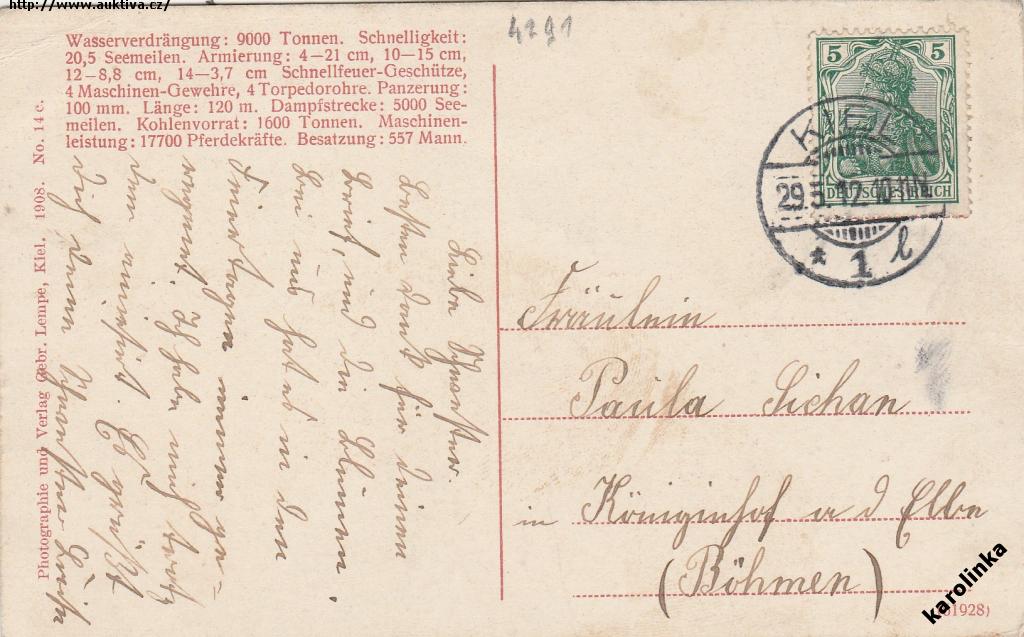 http://www.auktiva.cz/
4291
Wasserverdrängung: 9000 Tonnen. Schnelligkeit:
20,5 Seemeilen. Armierung: 4—21 cm, 10—15 cm,
12—8,8 cm, 14—3,7 cm Schnellfeuer-Geschütze,
4 Maschinen-Gewehre, 4 Torpedorohre. Panzerung:
100 mm. Länge: 120 m. Dampfstrecke: 5000 See-
meilen. Kohlenvorrat: 1600 Tonnen. Maschinen-
leistung: 17700 Pferdekräfte. Besatzung: 557 Mann.
Photographie und Verlag Gebr. Lempe, Kiel. 1908. No. 14 c.
Liebe Schwester.
Besten Dank für Deinen
Brief, und die Blumen.
Bei uns hat es in den
Feiertagen immer ge-
regnet. Ich habe mich trotz
dem amüsiert. Es grüßt
Dich Deine Schwester
5 5
DEUTSCHES REICH
KIEL
29.5.12. 10-11 N
* 1 l
Fräulein
Paula Sichan
in Königinhof a d Elbe
(Böhmen)
karolinka
61928)